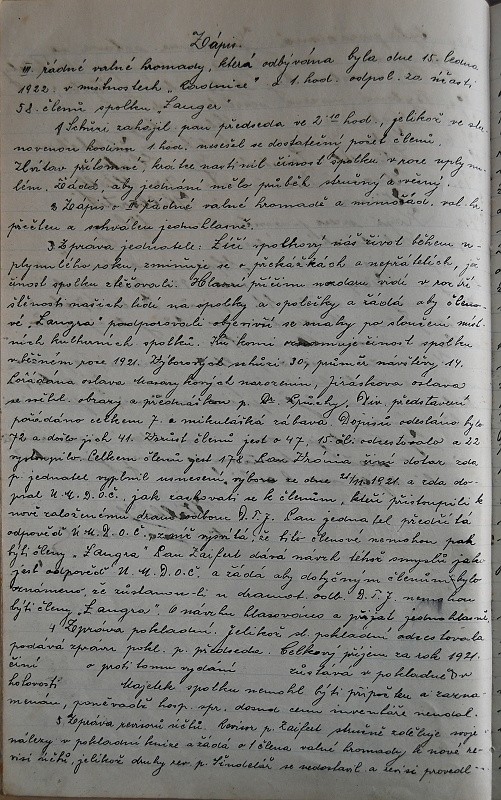 Zápis.
III. řádné valné hromady, která odbývána byla dne 15. ledna
1922 v místnostech „Besednice" o 1. hod. odpol. za účasti
58. členů spolku „Langer"
1 Schůzi zahájil pan předseda ve 2 hod., jelikož ve sta-
novenou hodinu 1 hod. nesešel se dostatečný počet členů.
Uvítav přítomné, krátce nastínil činnost spolku v roce uply nu-
lém. Žádá, aby jednání mělo průběh stručný a věcný.
2 Zápis o II řádné valné hromadě a mimořád. val. hr.
přečten a schválen jednohlasně.
3 Zpráva jednatele: Líčí spolkový náš život během u-
plynulého roku, zmiňuje se o překážkách a nepřátelích, již
činost spolku ztěžovali. Hlavní příčinu nezdaru vidí v roztří-
štěnosti našich lidí na spolky a společky a žádá aby členo-
vé „Langra" podporovali objevivší se snahy po sloučení míst-
ních kulturních spolků. Ku konci činost spolku
v běžném roce 1921. Výborových schůzí 30, průměr návštěvy 14.
Pořádána oslava Masarykových narozenin, Jiráskova oslava
se světel. obrazy a přednáškou p. Dr. Div. představení
pořádáno celkem 7. a mikulášská zábava. Dopisů odesláno bylo
72 a došlo jich 41. Vzrůst členů jest o 47. 15 čl. odcestovalo a 22
vystoupilo. Celkem členů jest 178. Pan činí dotaz zda
p. jednatel vyplnil usnesení výboru ze dne 21/XI 1921. a zda do-
psal Ú. M. D. O. Č. jak zachovati se k členům, kteří přistoupili k
nově založenému dram. odboru D. T. J. Pan jednatel předčítá
odpověď Ú. M. D. O. Č. vyznívá, že tito členové nemohou pak
býti členy „Langra" Pan Zaifert dává návrh téhož smyslu jako
jest odpověď Ú. M. D. O. Č. a žádá aby dotyčným členům bylo
oznámeno, že zůstanou-li u dramat. odb. D. T. J. nemohou
býti členy „Langra". O návrhu hlasováno a přijat jednohlasně.
4 Zpráva pokladní. Jelikož sl. pokladní odcestovala
podává zprávu pokl. p. předseda. Celkový příjem za rok 1921.
činí o proti tomu vydání zůstává v pokladně v
hotovosti Majetek spolku nemohl býti připočten a zazna-
menán, poněvadž hosp. spr. dosud cenu inventáře neudal.
5 Zpráva revisorů účtů. Revisor p. Zaifert stručně sděluje svoje
nálezy v pokladní knize a žádá o 1 člena valné hromady k nové re-
visi účtů, jelikož druhý rev. p. Šindelář se nedostavil a revisi provedl